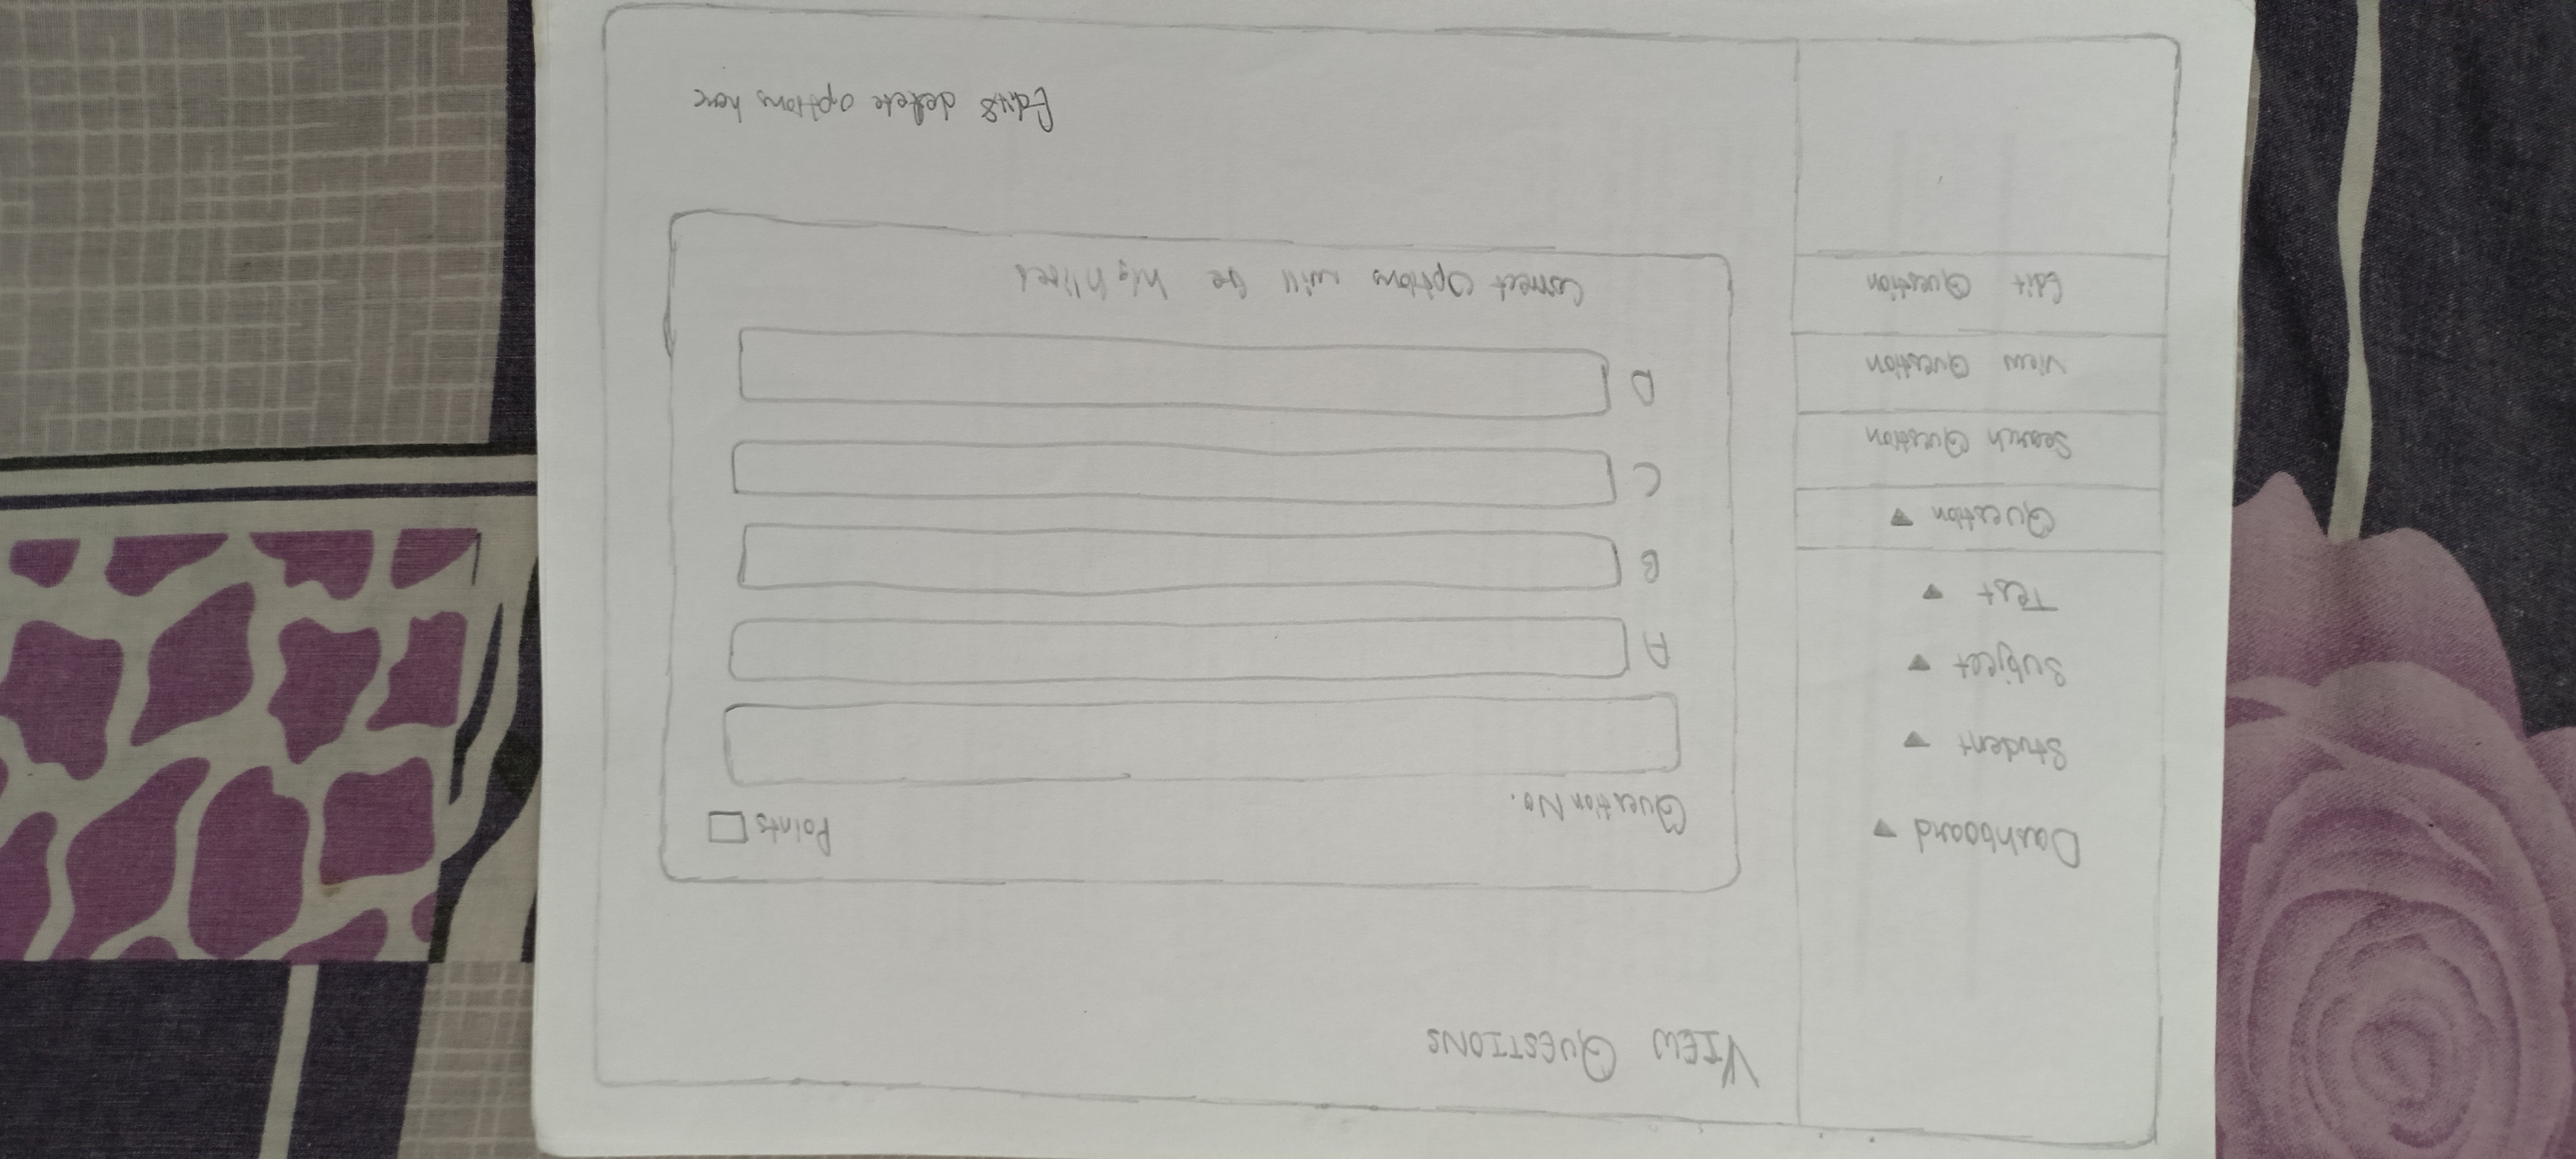 VIEW QUESTIONS
Dashboard
Student
Subject
Test
Question
Search Question
View Question
Edit Question
Question No.
Points
A
B
C
D
Correct options will be highlited
Edit & delete options here